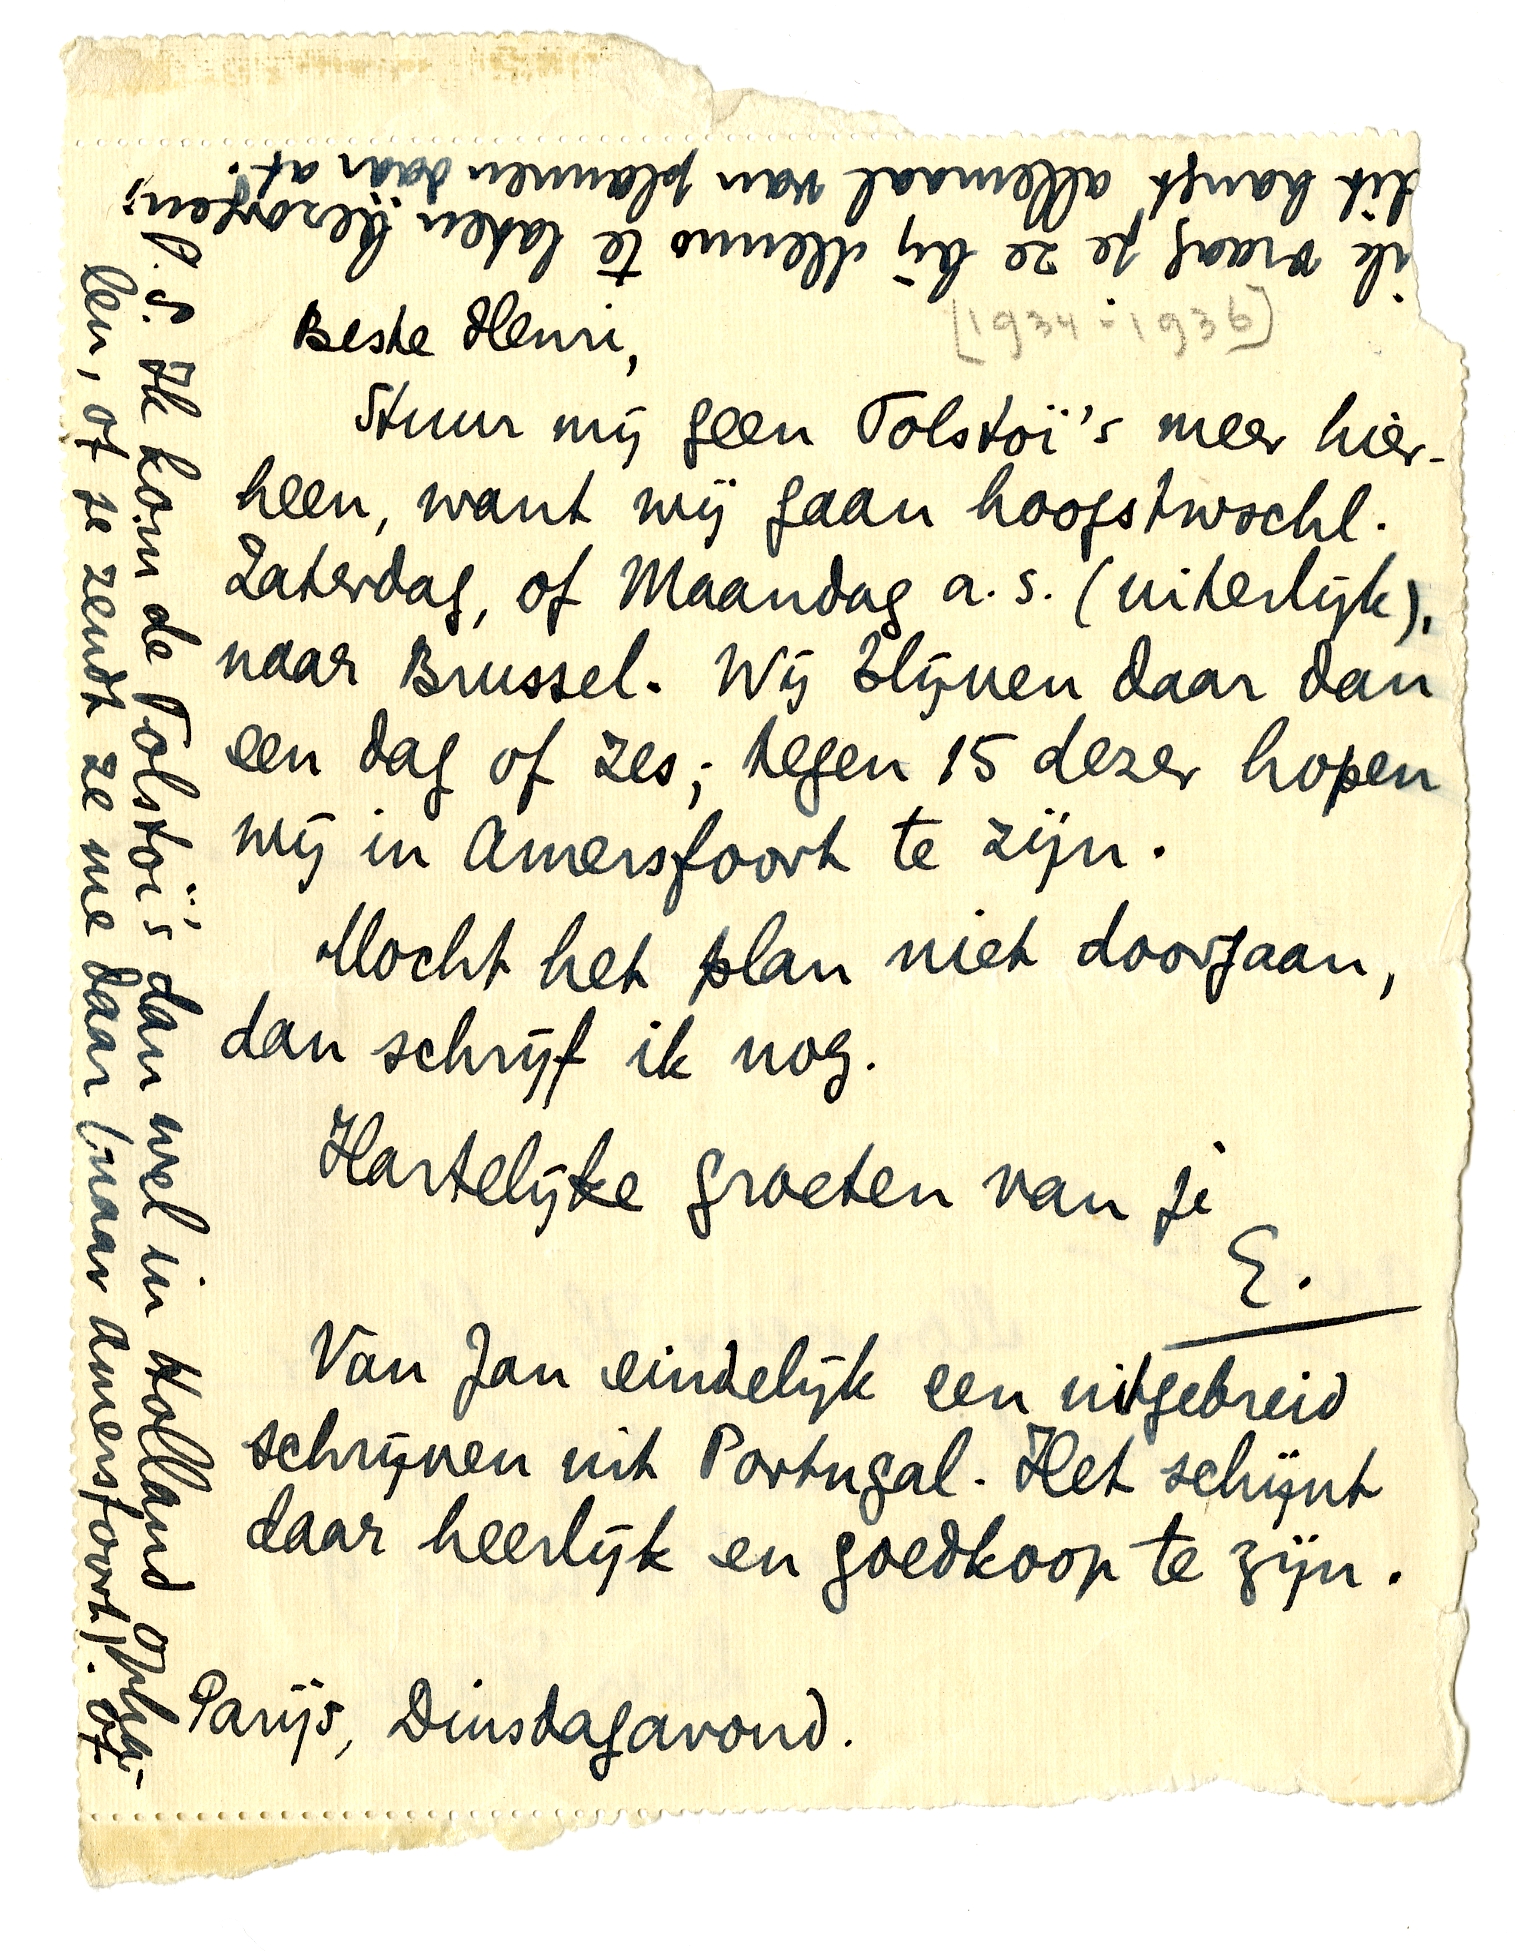 [1934-1936]
Beste Henri,
Stuur mij geen Tolstoï's meer hier-
heen, want wij gaan hoogstwschl.
Zaterdag, of Maandag a.s. (uiterlijk),
naar Brussel. Wij blijven daar dan
een dag of zes; tegen 15 dezer hopen
wij in Amersfoort te zijn.
Mocht het plan niet doorgaan,
dan schrijf ik nog.
Hartelijke groeten van je
E.
Van Jan eindelijk een uitgebreid
schrijven uit Portugal. Het schijnt
daar heerlijk en goedkoop te zijn.
Parijs, Dinsdagavond.
P.S. Ik kom de Tolstoï's dan wel in Holland opha-
len, of je zendt ze me daar (naar Amersfoort). Of
ik vraag je ze bij Menno te laten bezorgen;
dit hangt allemaal van plannen daar af.